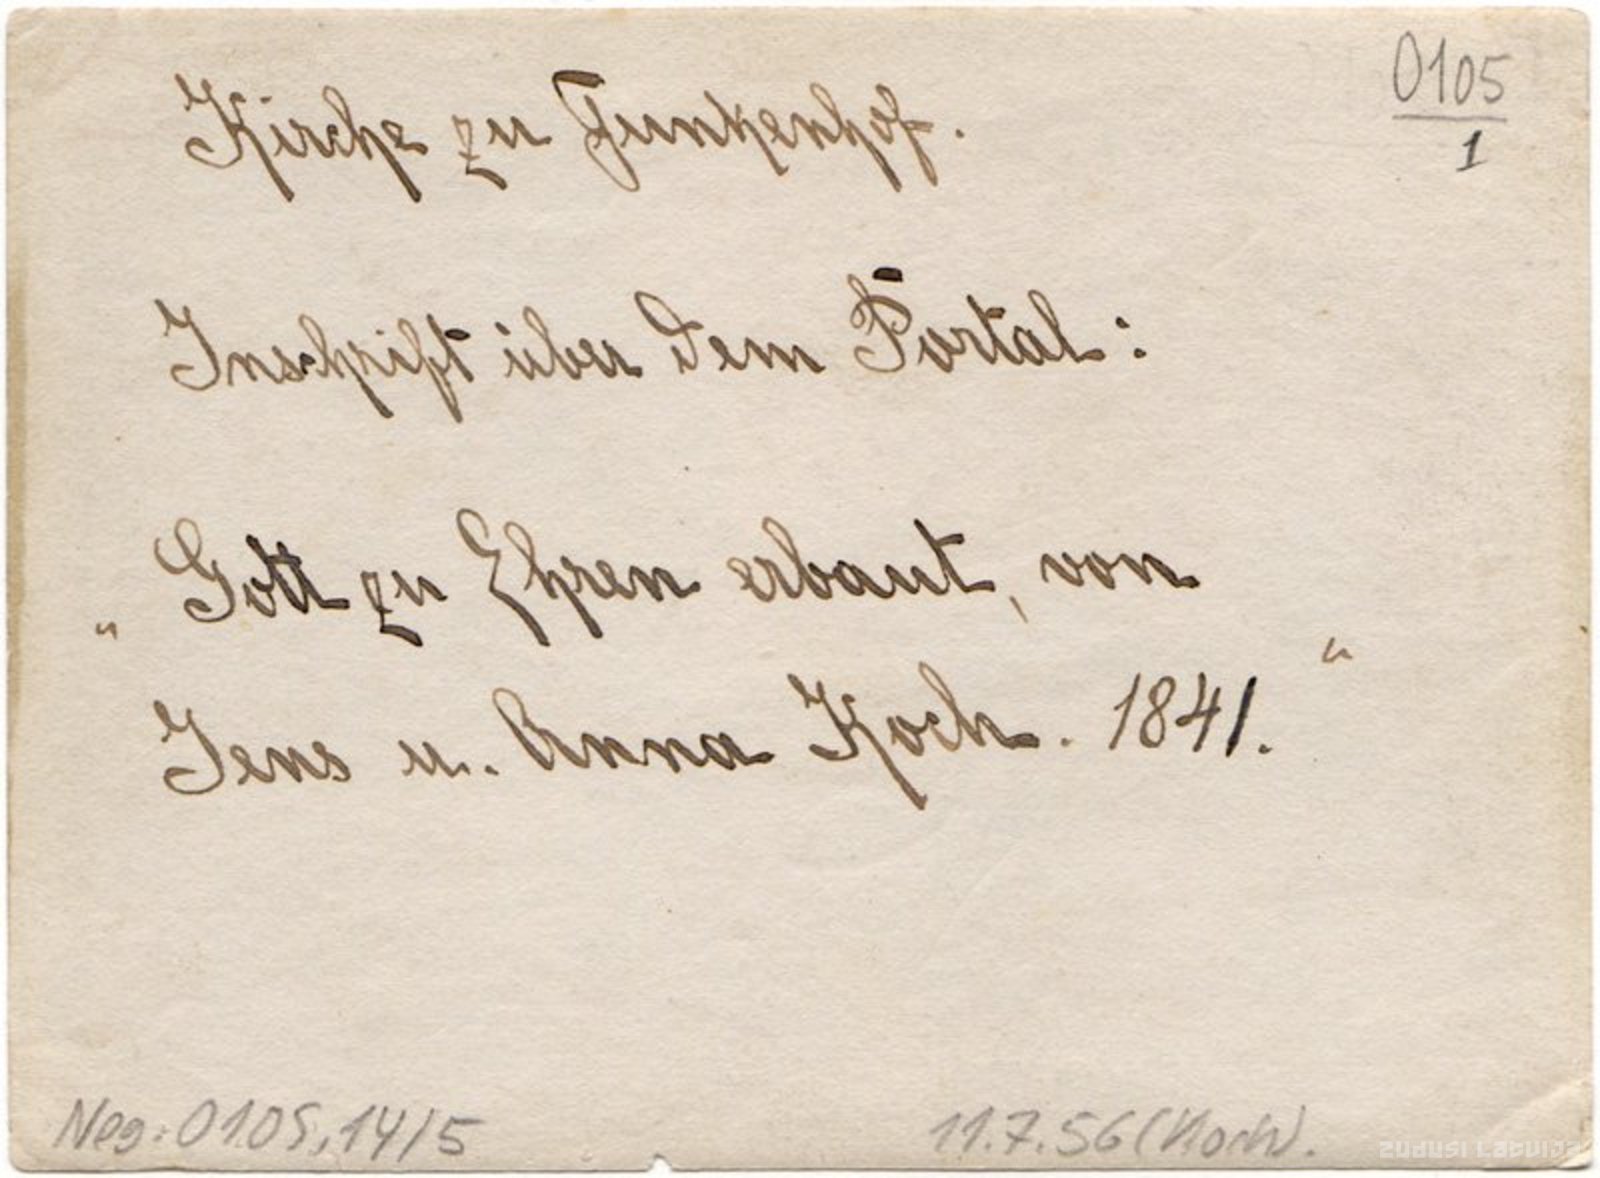 0105
1
Kirche zu Funkenhof.
Inschrift über dem Portal:
„Gott zu Ehren erbaut, von
Jens u. Anna Koch. 1841."
Neg: 0105, 14/5
11.7.56 (Koch).
zudusi Latvija